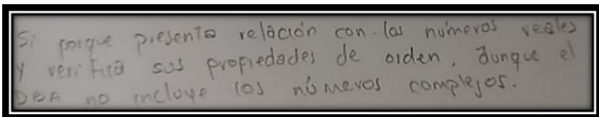 Si porque presenta relación con los números reales
y verifica sus propiedades de orden, aunque el
DBA no incluye los números complejos.